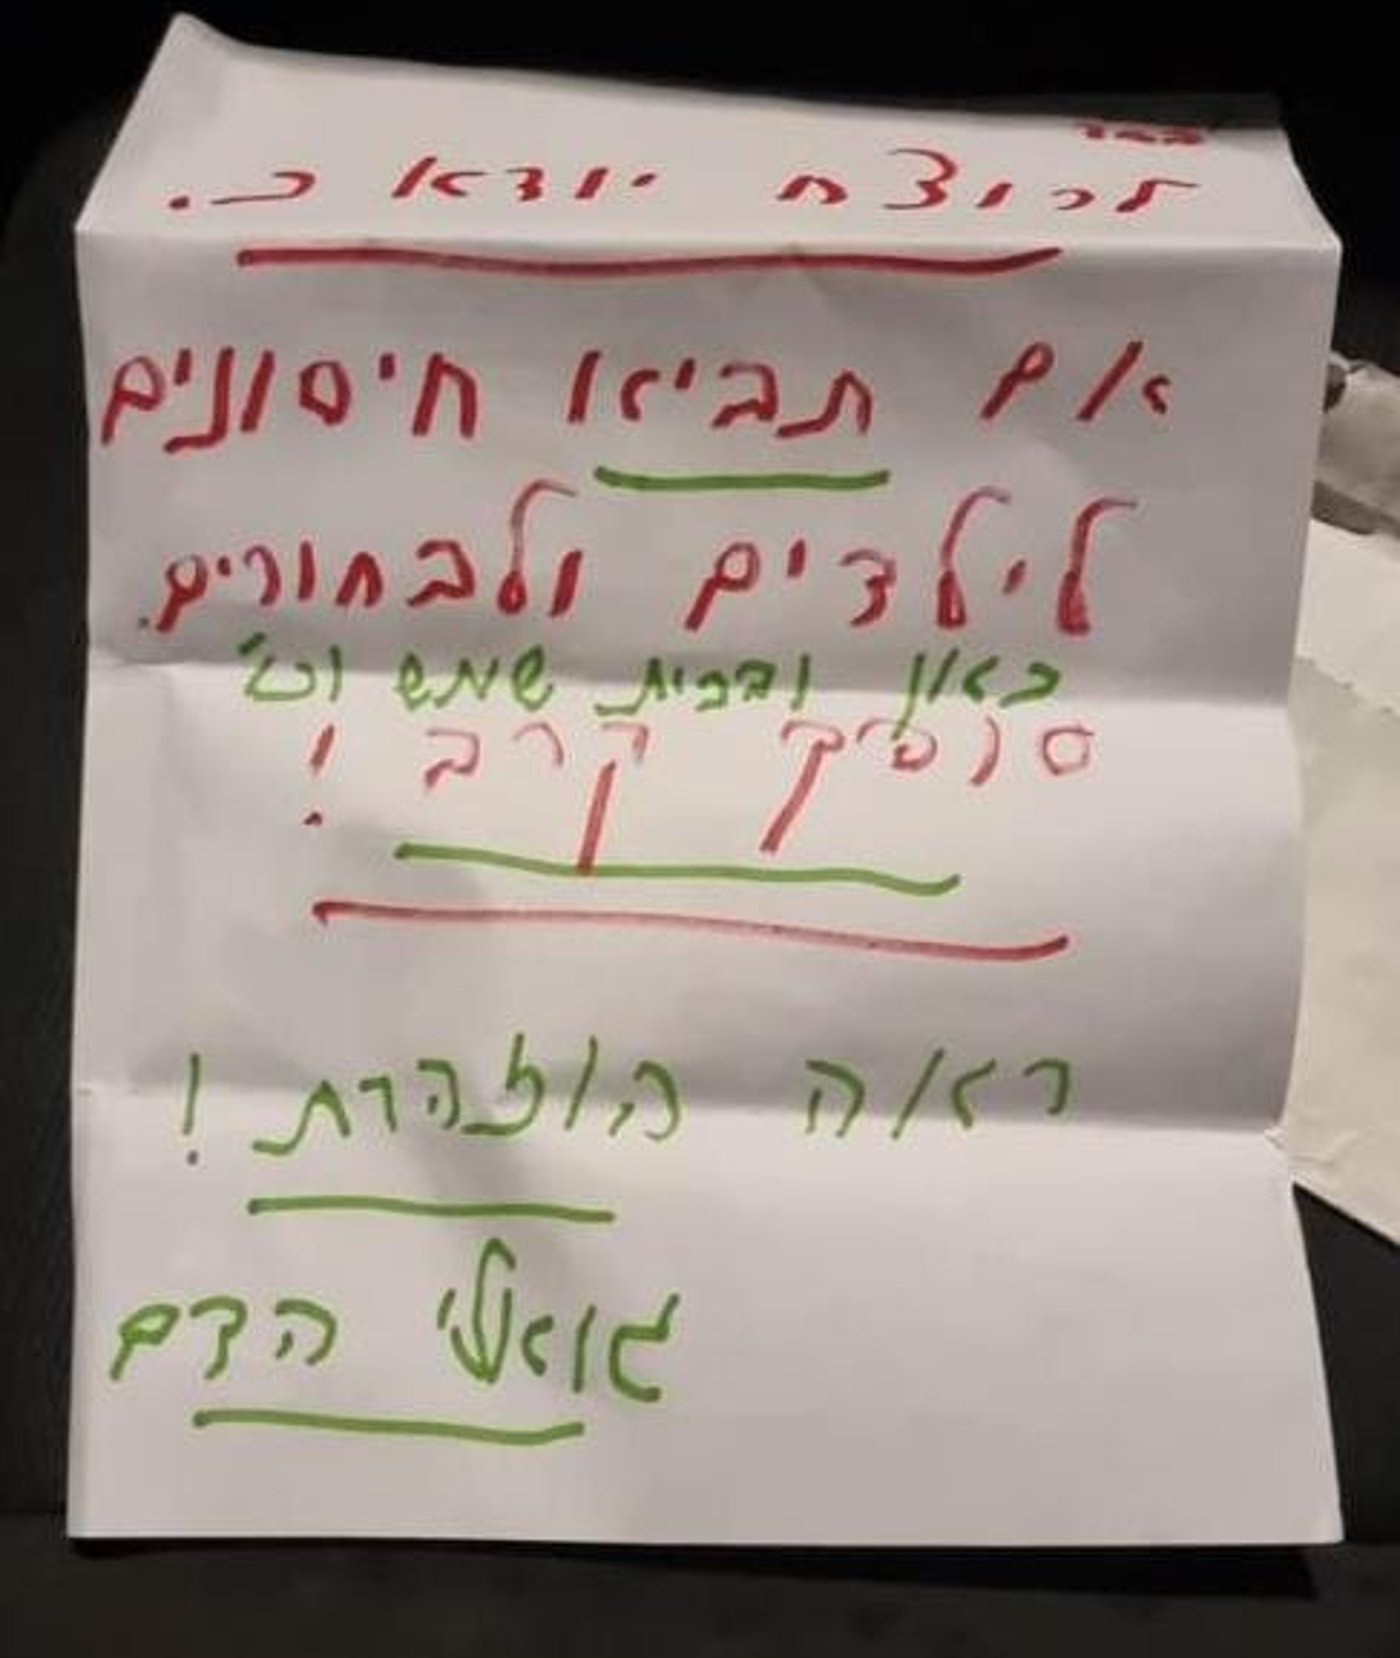 לרוצח יודא כ.
אם תביא חיסונים
לילדים ולבחורים.
כאן ובבית שמש וכו'
סופך קרב!
ראה הוזהרת!
גואלי הדם